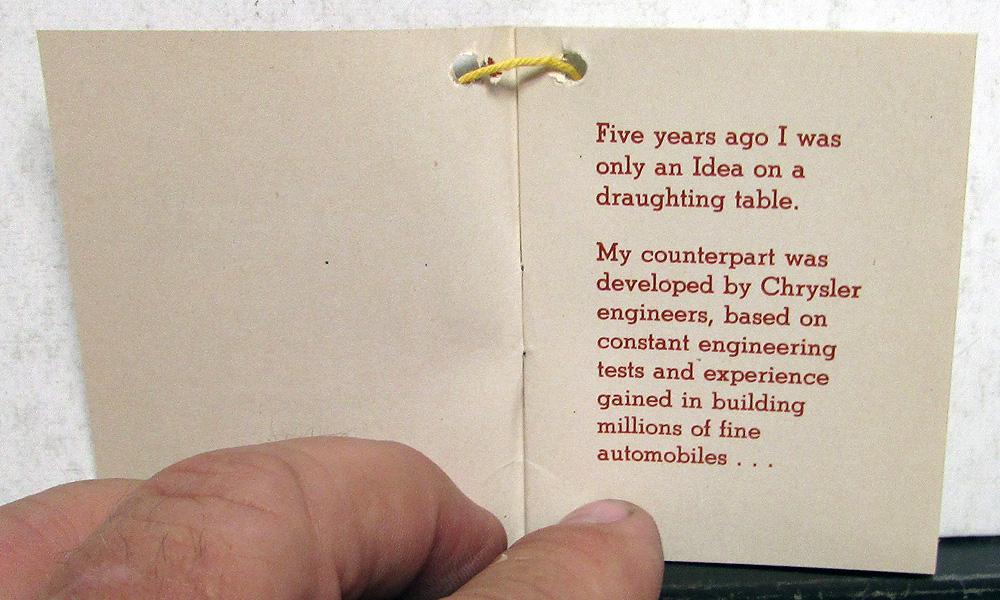 Five years ago I was
only an Idea on a
draughting table.
My counterpart was
developed by Chrysler
engineers, based on
constant engineering
tests and experience
gained in building
millions of fine
automobiles . . .